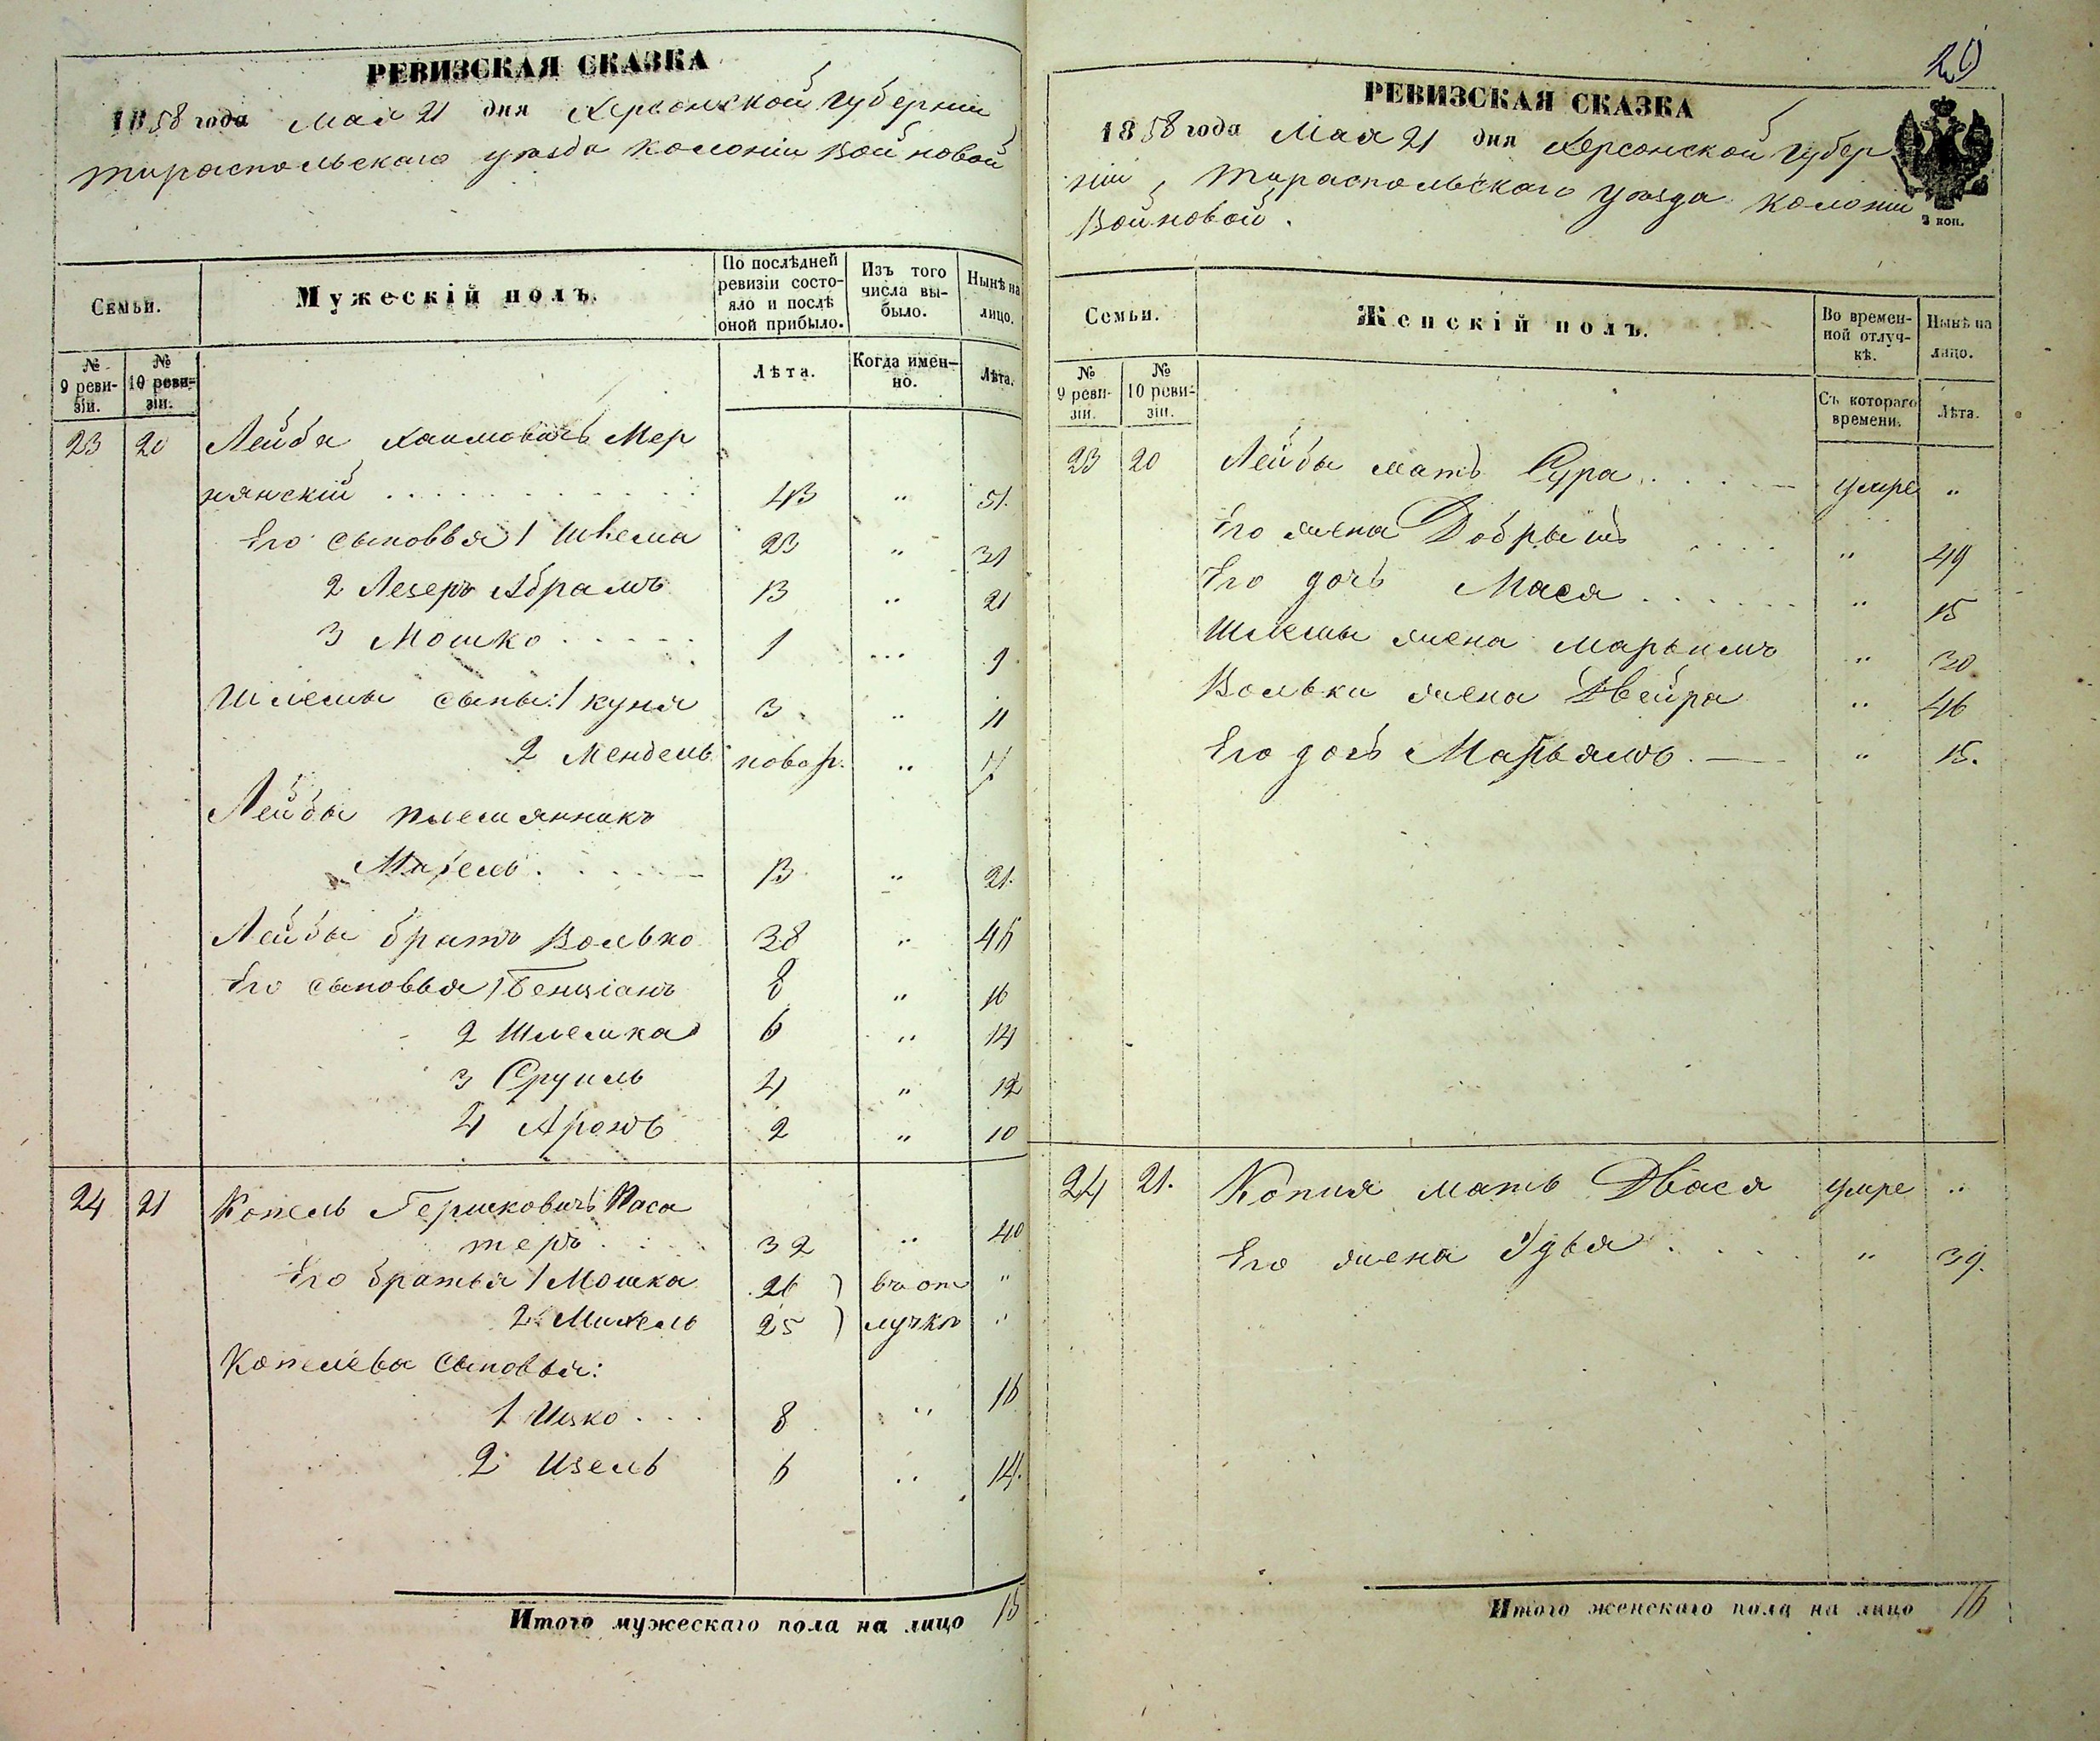 РЕВИЗСКАЯ СКАЗКА
1858 года Мая 21 дня Херсонской губерніи
тираспольскаго уѣзда колоніи Войновой
Семьи.
Мужескій полъ.
По послѣдней ревизіи состояло и послѣ оной прибыло.
Изъ того числа выбыло.
Нынѣ на лицо.
№ 9 ревизіи.
№ 10 ревизіи.
Лѣта.
Когда именно.
Лѣта.
23 20 Лейба Хаимовичъ Мер
нянскій 43 " 51.
Его сыновья 1 Шлема 23 " 31
2 Лезеръ Абрамъ 13 " 21
3 Мошко 1 " 9
Шлемы сыны: 1 куня 3 " 11
2 Мендель новор. "
Лейбы племянникъ
13 " 21.
Лейбы братъ Волько 38 " 46
Его сыновья 1 Бенціанъ 8 " 16
2 Шлемка 6 " 14
3 Сруиль 4 " 12
4 Аронъ 2 " 10
24 21 Копель Гершковичъ Паса
теръ 32 " 40
Его братья 1 Мошка 26 ) въ от "
2 25 ) лучкѣ "
Копелева сыновья:
1 Ицко 8 " 16
2 Изель 6 " 14.
Итого мужескаго пола на лицо 15
20
РЕВИЗСКАЯ СКАЗКА
1858 года Мая 21 дня Херсонской губер
ніи, тираспольскаго уѣзда колоніи
Войновой.
3 коп.
Семьи.
Женскій полъ.
Во временной отлучкѣ.
Нынѣ на лицо.
№ 9 ревизіи.
№ 10 ревизіи.
Съ котораго времени.
Лѣта.
23 20 Лейбы мать Сура умре "
Его жена Добрышъ " 49
Его дочь Мася " 15
Шлемы жена Марьимъ " 30
Вольки жена Двейра " 46
Его дочь Марьямъ " 15.
24 21. Копиля мать Двася умре "
Его жена Удья " 39.
Итого женскаго пола на лицо 16